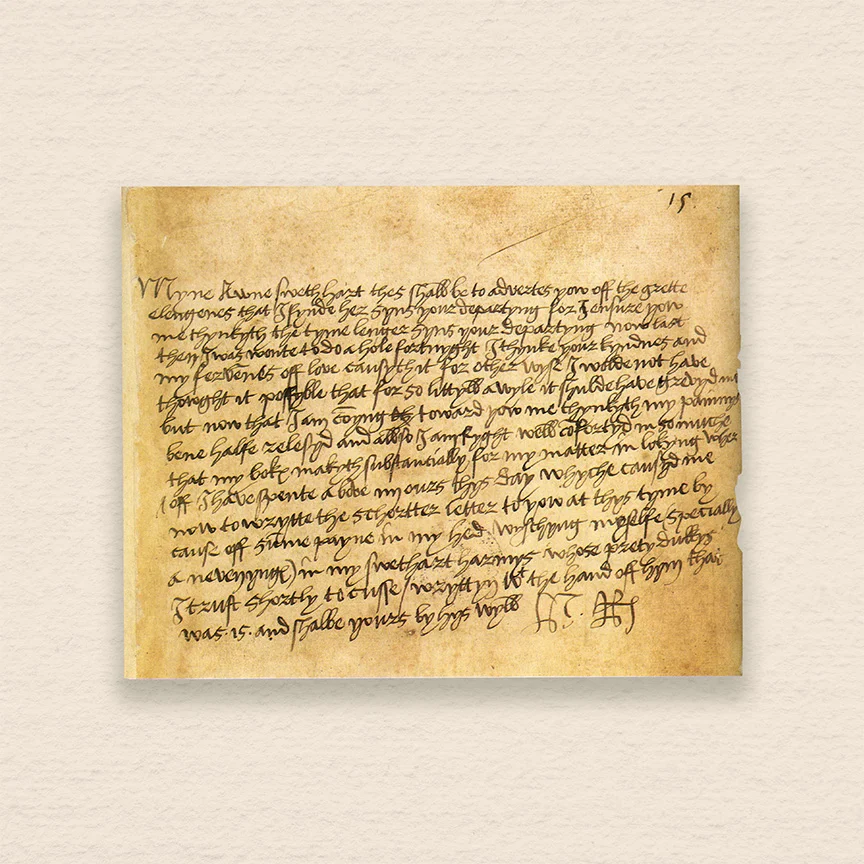 15
Myne Awne swethhart thes shalbe to advertes yow off the grette
elengenes that I fynde her syns your departyng for I ensure yow
me thynkyth the tyme lenger syns your departyng now last
then I was wonte to do a hole fortnyght I thynke your kyndnes and
my fervenes off love causyth it for other wyse I wolde not have
thowght it possyble that for so littyll a wyle it shulde have grevyd me
but now that I am comyng toward yow me thynkyth my painnys
bene halfe relesyd and allso I am ryght well comfortyd in so muche
that my boke makyth substancially for my matter in lokyng wher
off I have spente above iiii ours thys day whyche causyd me
now to wrytte the schortter letter to yow at thys tyme by
cause off summe payne in my hed wyschyng my selfe specially
a nevenynge in my swethart harmys whose prety dukkys
I trust shortly to cusse wryttyn with the hand off hym that
was is and shalbe yours by hys wyll